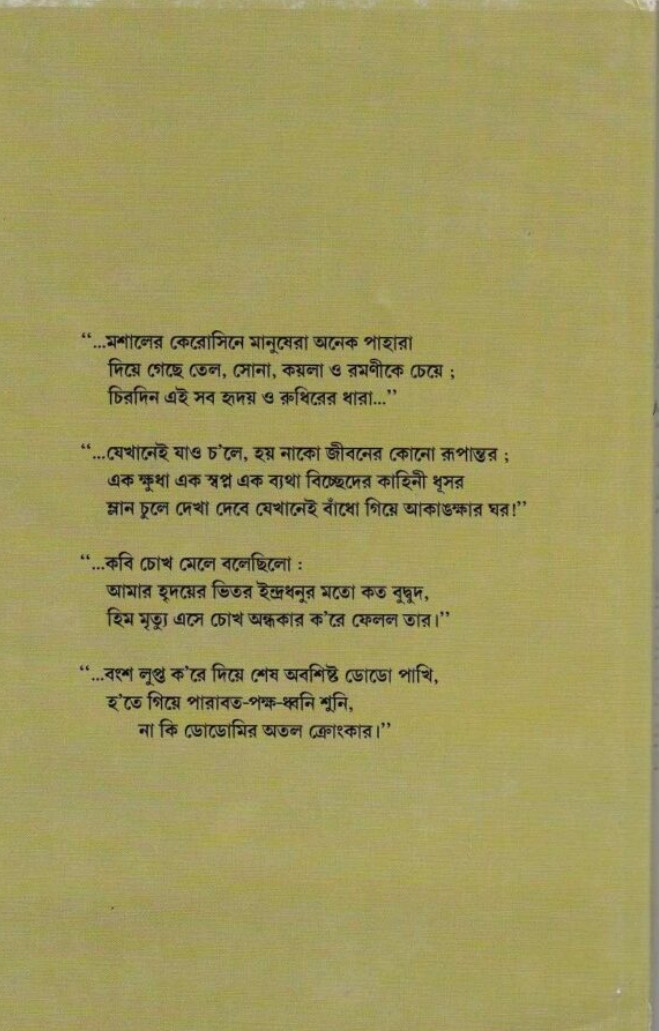 “...মশালের কেরোসিনে মানুষেরা অনেক পাহারা
দিয়ে গেছে তেল, সোনা, কয়লা ও রমণীকে চেয়ে ;
চিরদিন এই সব হৃদয় ও রুধিরের ধারা...”
“...যেখানেই যাও চ'লে, হয় নাকো জীবনের কোনো রূপান্তর ;
এক ক্ষুধা এক স্বপ্ন এক ব্যথা বিচ্ছেদের কাহিনী ধূসর
ম্লান চুলে দেখা দেবে যেখানেই বাঁধো গিয়ে আকাঙক্ষার ঘর!”
“...কবি চোখ মেলে বলেছিলো :
আমার হৃদয়ের ভিতর ইন্দ্রধনুর মতো কত বুদ্বুদ,
হিম মৃত্যু এসে চোখ অন্ধকার ক'রে ফেলল তার।”
“...বংশ লুপ্ত ক'রে দিয়ে শেষ অবশিষ্ট ডোডো পাখি,
হ'তে গিয়ে পারাবত-পক্ষ-ধ্বনি শুনি,
না কি ডোডোমির অতল ক্রেংকার।”